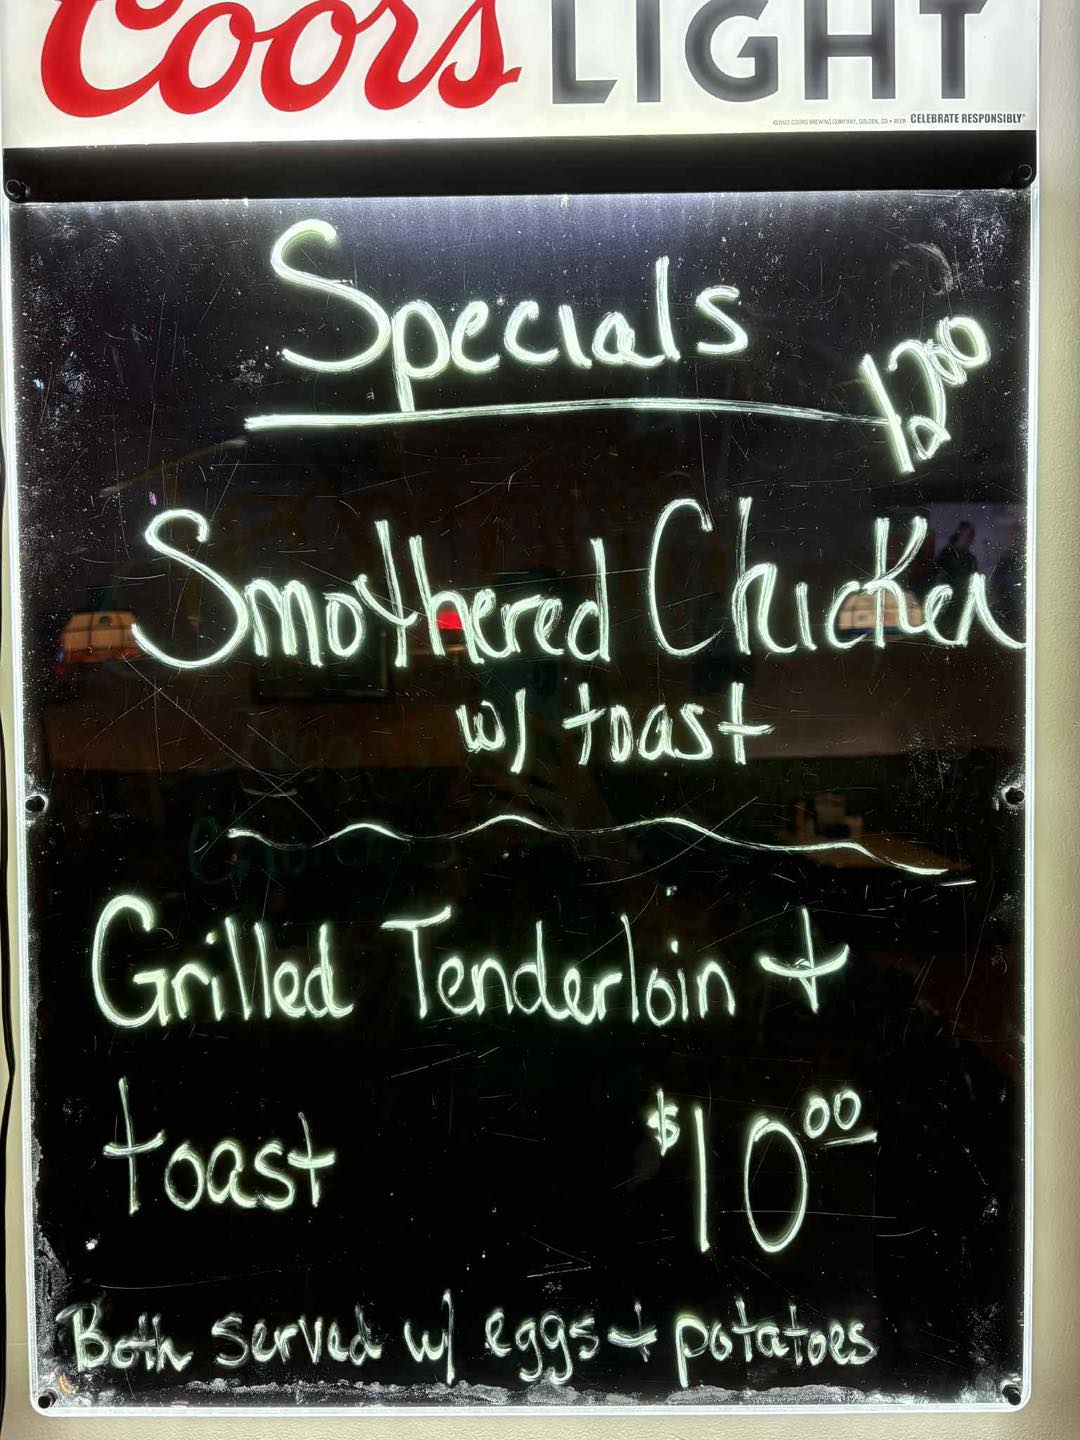 Coors LIGHT
©2023 COORS BREWING COMPANY, GOLDEN, CO • BEER CELEBRATE RESPONSIBLY®
Specials
1200
Smothered Chicken
w/ toast
Grilled Tenderloin +
toast $10.00
Both served w/ eggs + potatoes